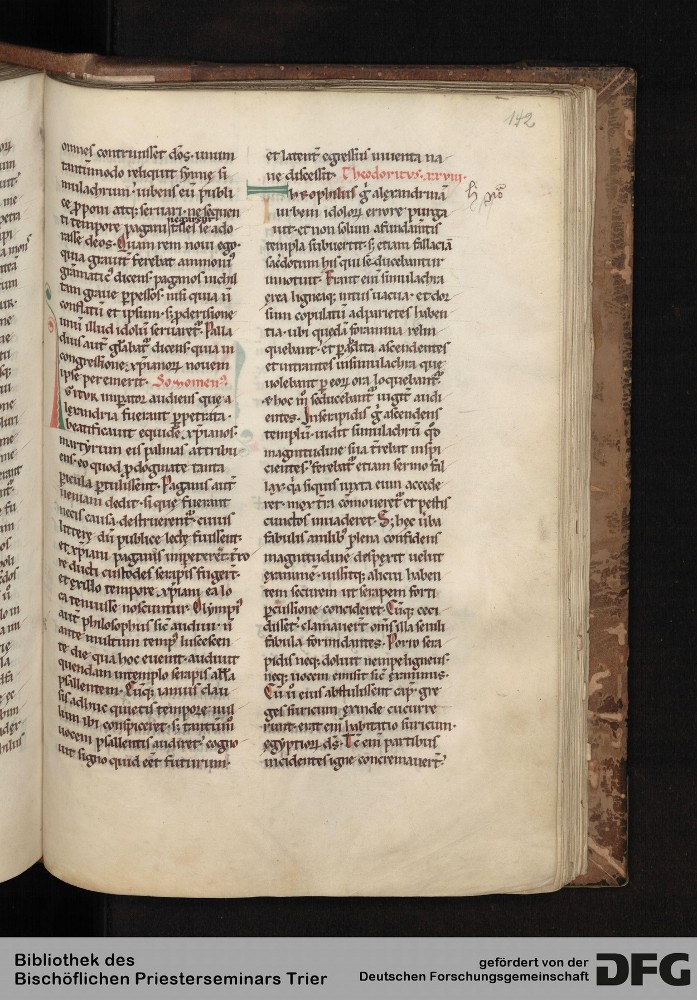 142
omnes contriuisset dōs. unum
tantūmodo reliquit simie si
mulachrum. iubens eū publi
ce ꝓponi atq; seruari. ne sequen
negarent
ti tempore pagani tales se ado
rasse deos. Quam rem noui ego.
qua grauit̄ ferebat ammoni᷒
grāmatic᷒ dicens. paganos nichil
tam graue ꝑpessos. nisi quia ñ
conflatū et ipsum. s; ꝓ derisione
unū illud idolū seruaret᷒. Palla
dius aut̄ gl̄abat᷒ dicens. quia in
congressione xp̄ianoꝝ nouem
ipse peremerit. Sozomen᷒.
Igitur impator audiens que a
lexandria fuerant ꝑpetrata.
beatificauit equidē xp̄ianos.
martyrum eis palmas attribu
ens. eo quod ꝓ dogmate tanta
ꝑicula ꝑtulissent. Paganis aut̄
ueniam dedit. si que fuerant
necis causa destruerent᷒. cuius
littere dū publice lecte fuissent.
et xp̄iani paganis impeterēt. t̄ro
re ducti custodes serapis fugert̄.
et ex illo tempore xp̄iani ea lo
ca tenuisse noscuntur. Olimpi᷒
aut̄ philosophus sic̄ audiui. ñ
ante multum temp᷒ lucescen
te die qua hoc euenit. audiuit
quendam in templo serapis all̄a
psallentem. Cumq; ianuis clau
sis adhuc quietis tempore nul
lum ibi conspiceret. s; tantūm̄
uocem psallentis audiret. cogno
uit signo quid eēt futurum.
et latent̄ egressus uiuenta na
ue discessit. Theodoritus. xxviii.
Theophilus ḡ alexandrinā
urbem idoloꝝ errore purga
uit. et non solum a fundam̄tis
templa subuertit. s; etiam fallaciā
sac̄dotum his qui seducebantur
innotuit. Erant eīm simulachra
erea ligneaq; intus uacua. et dor
sum copulatū ad parietes haben
tia. ubi quedā foramina relin
quebant. et ꝑ abdita ascendentes
et intrantes in simulachra que
uolebant ꝑ eoꝝ ora loquebant᷒.
et hoc m̄ seducebant᷒ iugit̄ audi
entes. In serapidis ḡ ascendens
templū. uidit simulachrū qd̄
magnitudine sua t̄rebat inspi
cientes. ferebat᷒ etiam sermo fal
lax. qa siquis iuxta eum accede
ret. mox t̄ra cōmoueret᷒ et pestis
cunctos inuaderet. S; hec ūba
fabulis anilib᷒ plena confidens
magnitudinē despexit uelut
exanimē. iussitq; alicui haben
tem securem ut serapem forti
ꝑcussione concideret. Cūq; ceci
disset. clamauert̄ om̄s illa senili
fabula formidantes. Porro sera
pidis neq; doluit nempe ligneus.
neq; uocem emisit sic̄ exanimis.
Cū ū eius abstulissent cap᷒. gre
ges suricum exinde cucurre
runt. erat eīm habitatio suricum.
egyptior ds̄. Tc̄ eīm partibus
incidentes igne concremauert̄.
Bibliothek des
Bischöflichen Priesterseminars Trier
gefördert von der
Deutschen Forschungsgemeinschaft
DFG